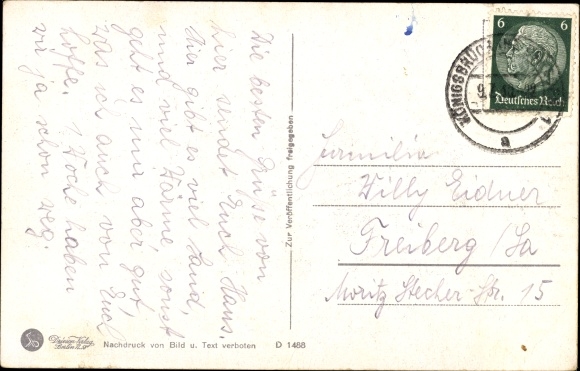 Die besten Grüße von
hier sendet Euch Hans.
Hier gibt es viel Sand,
und viel Wärme, sonst
geht es mir aber gut,
was ich auch von Euch
hoffe. 1 Woche haben
wir ja schon weg.
Zur Veröffentlichung freigegeben
6 6
Deutsches Reich
KÖNIGSBRÜCK
9.
a
Familie
Willy Eidner
Freiberg/Sa
Moritz Stecher-Str. 15
Nachdruck von Bild u. Text verboten D 1468